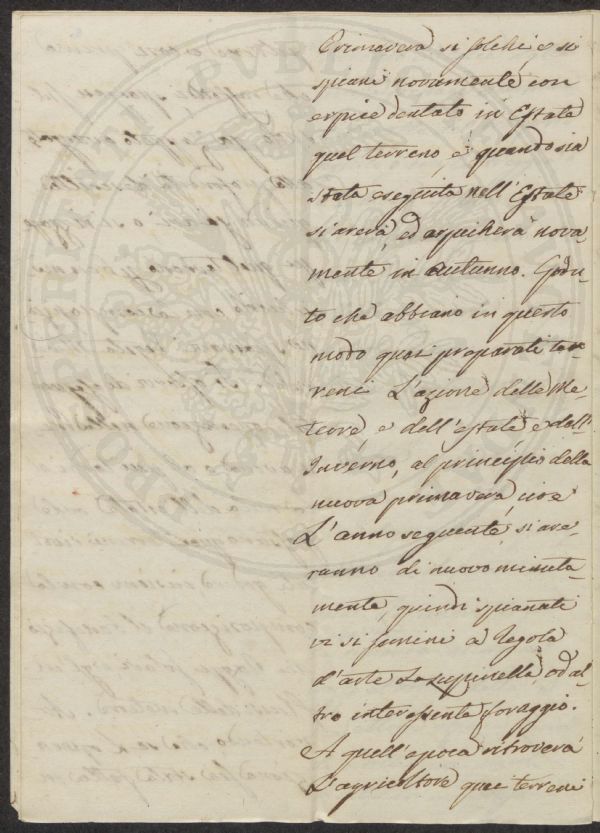 Primavera si solchi e si
spiani novamente con
erpice dentato in Estate
quel terreno, e quando sia
stata eseguita nell'Estate
si arerà, ed erpicherà nova-
mente in Autunno. Godu-
to che abbiano in questo
modo quei preparati ter-
reni L'azione delle Me-
teore, e dell'estate e dell'
Inverno, al principio della
nuova primavera, cioè
L'anno seguente, si are-
ranno di nuovo minuta-
mente, quindi spianati
vi si semini a regola
d'arte La Lupinella, od al-
tro interessante foraggio.
A quell'epoca ritroverà
L'agricoltore quei terreni